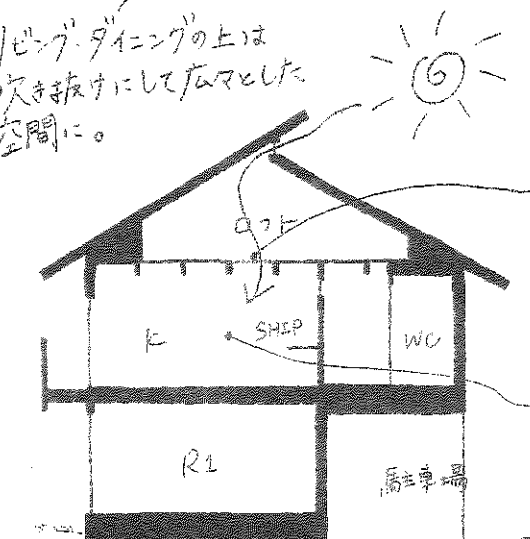 リビング・ダイニングの上は
吹き抜けにして広々とした
空間に。
ロフト
K
SHIP
WC
R1
駐車場